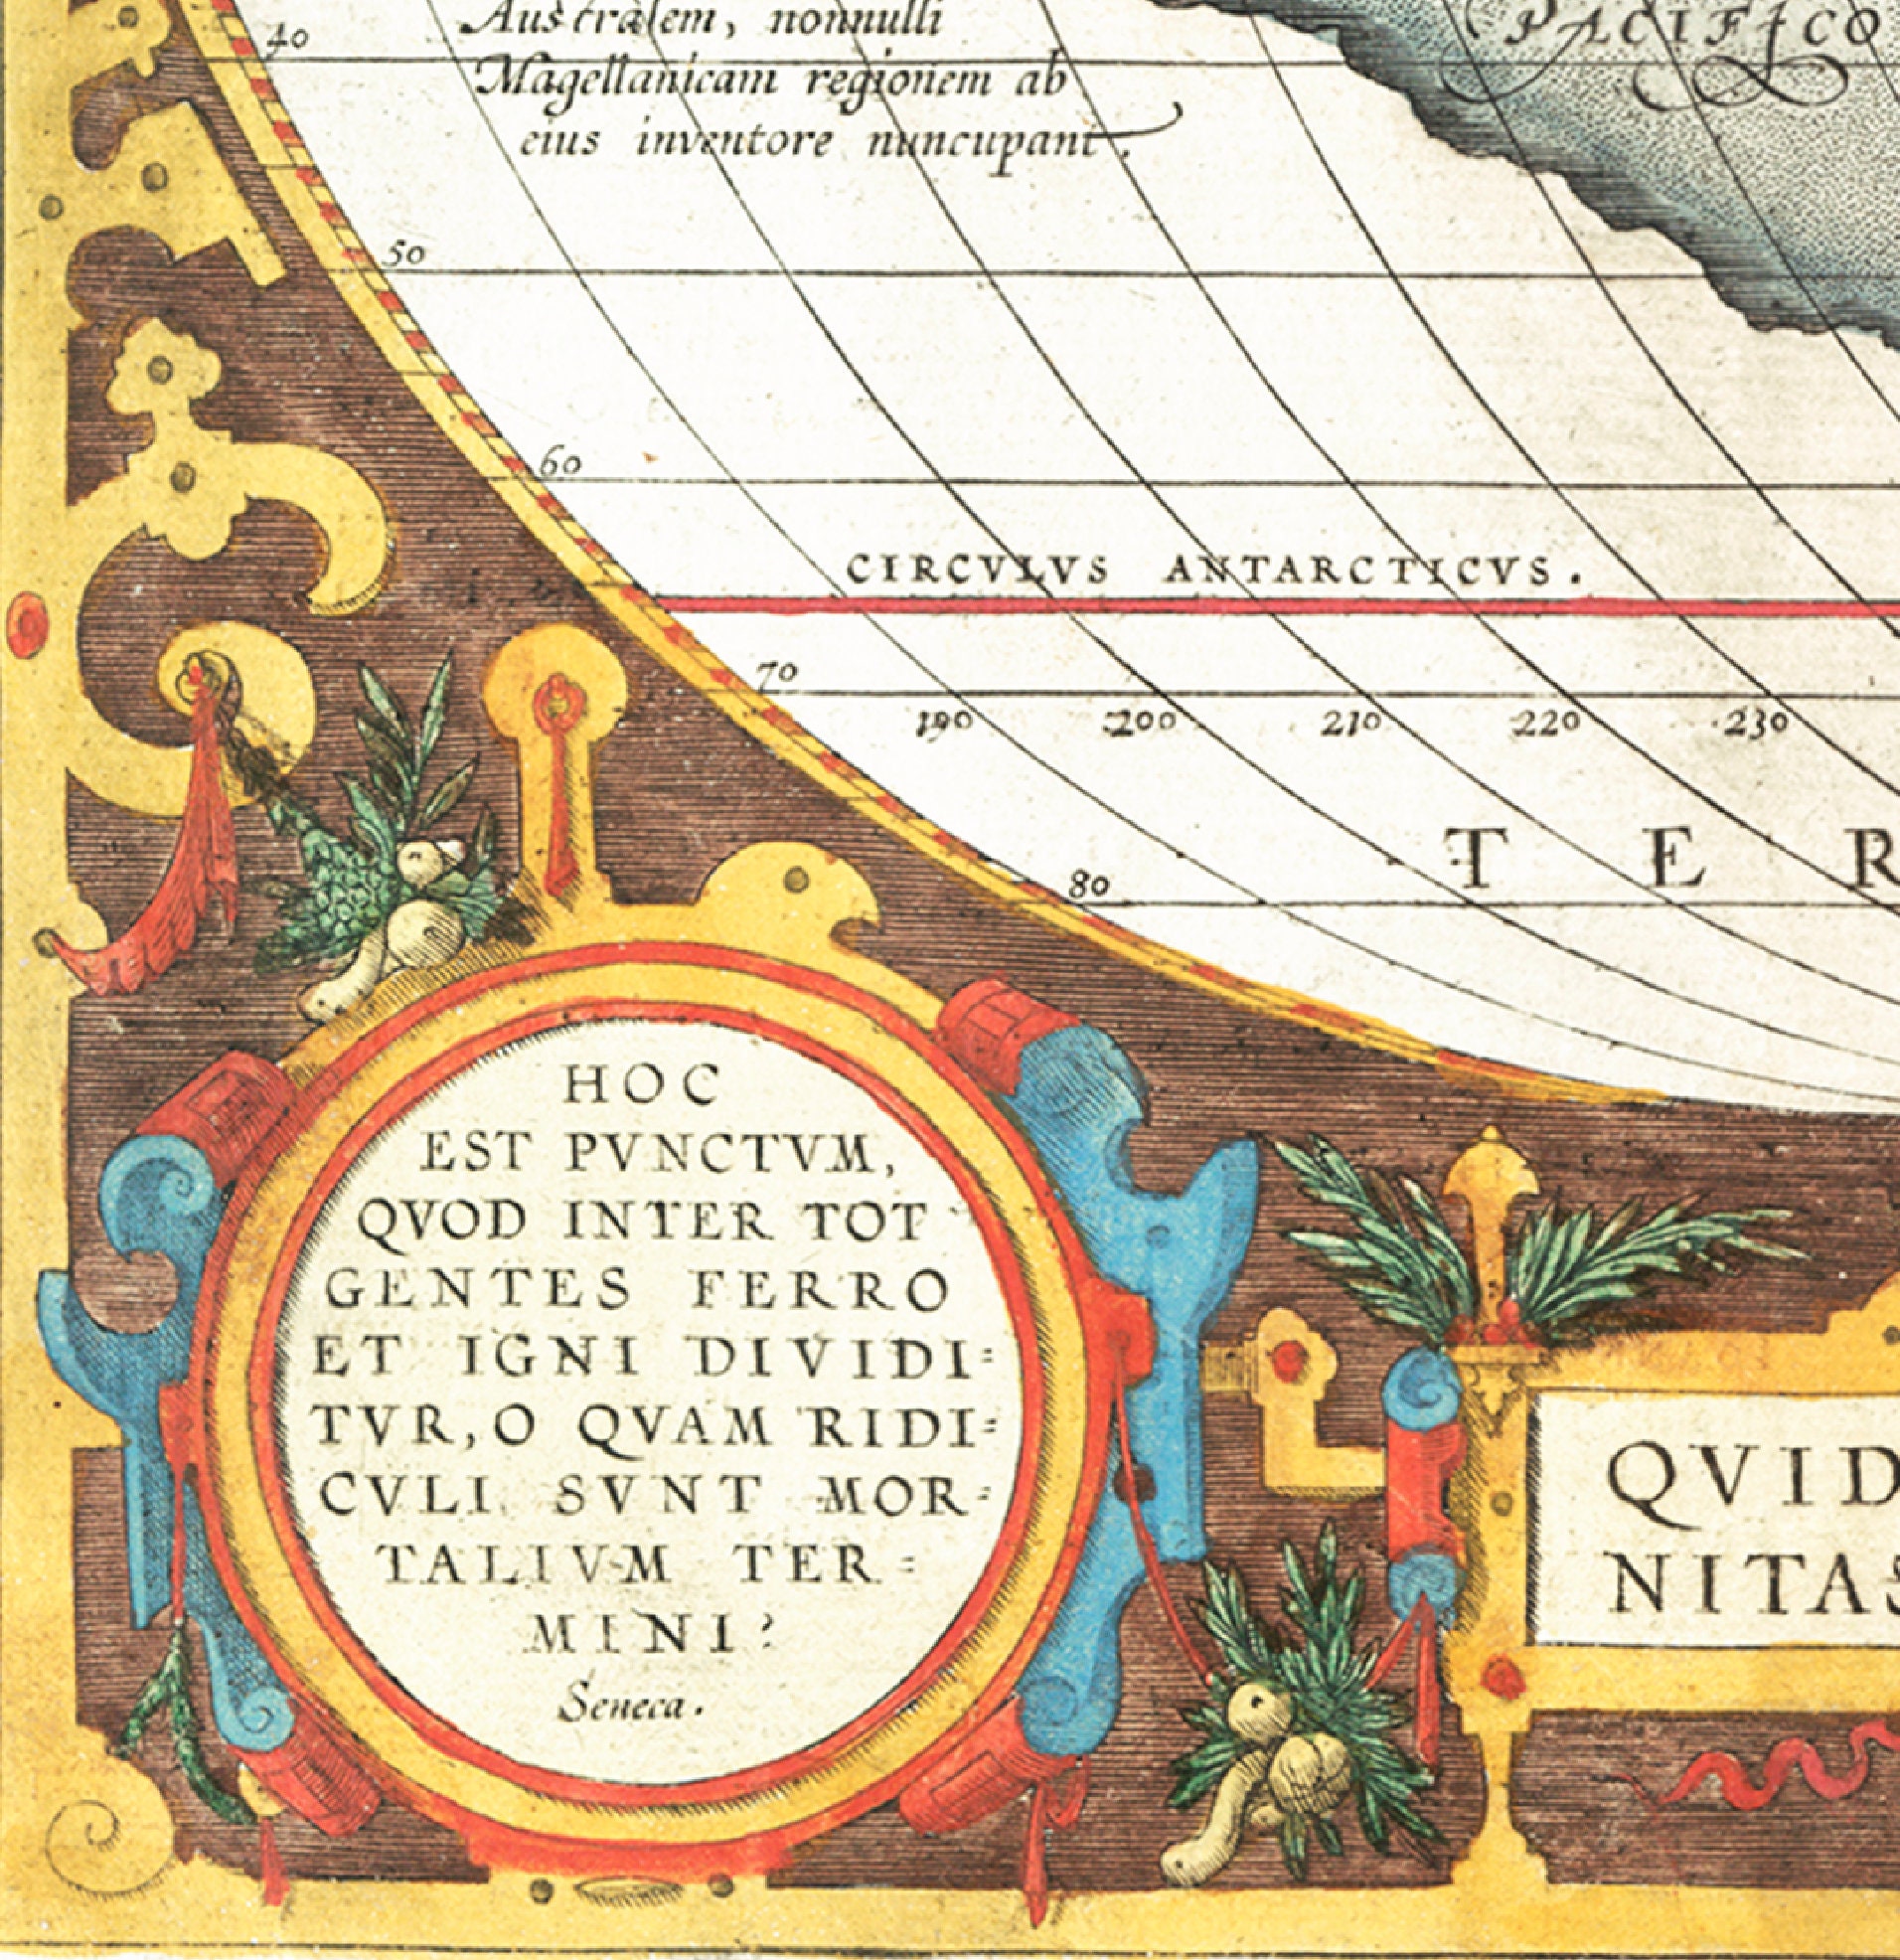 PACIFICO
40
Australem, nonnulli
Magellanicam regionem ab
eius inventore nuncupant.
50
60
CIRCVLVS ANTARCTICVS.
70
190 200 210 220 230
T E R
80
HOC
EST PVNCTVM,
QVOD INTER TOT
GENTES FERRO
ET IGNI DIVIDI=
TVR, O QVAM RIDI=
CVLI SVNT MOR=
TALIVM TER=
MINI?
Seneca.
QVID
NITAS